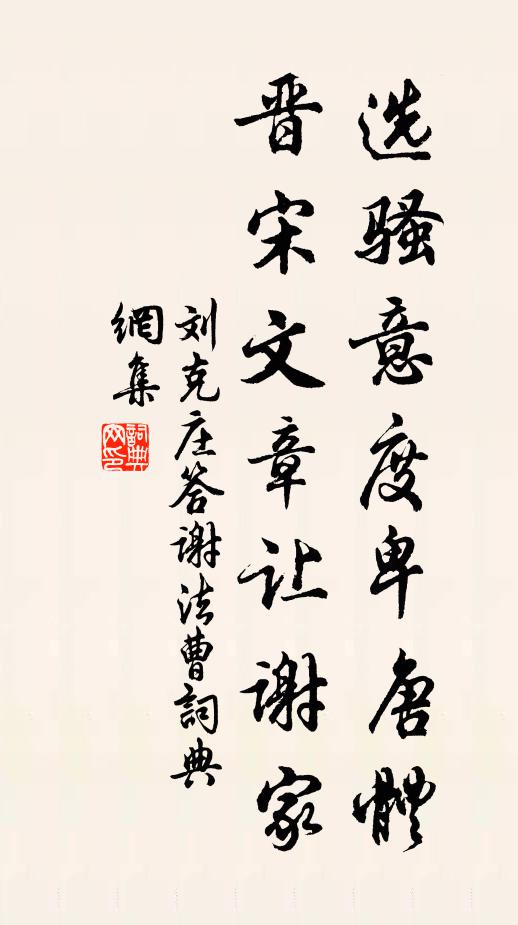 选骚意度卑唐體
晋宋文章让谢家
刘克庄答谢法曹詞典
網集
詞典網印